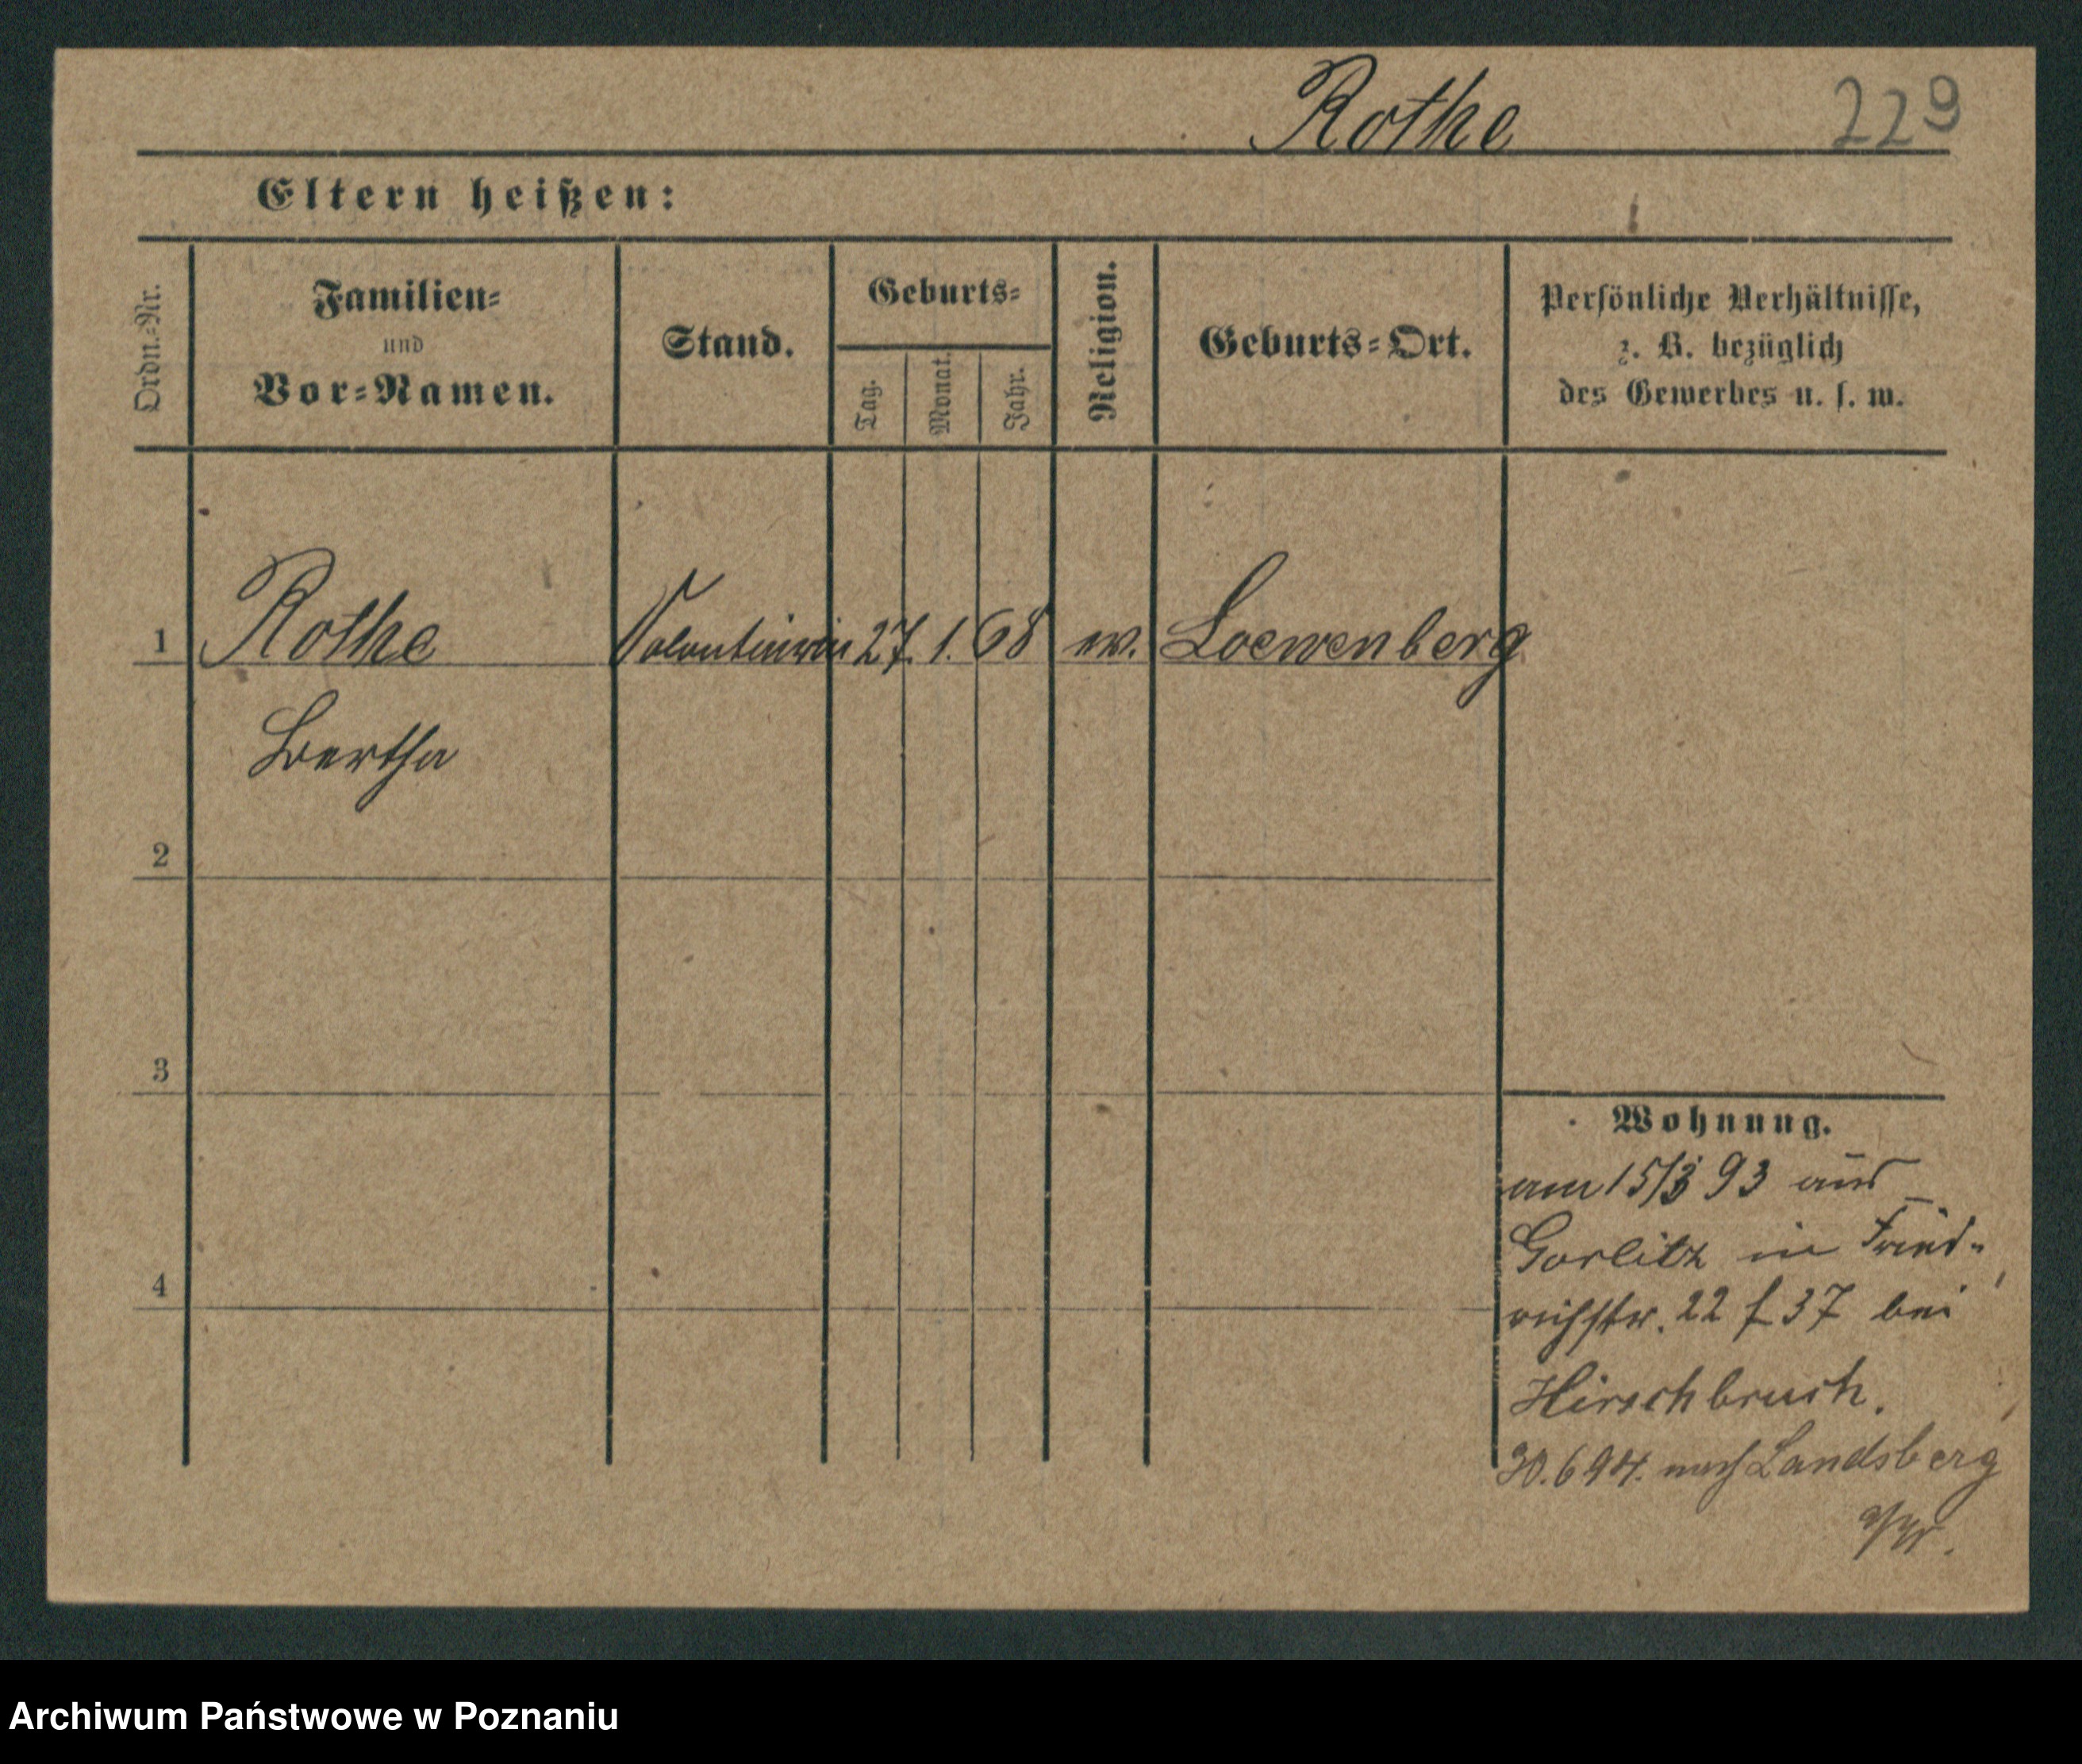 Rothe 229
Eltern heißen:
Ordn.=Nr.
Familien=
und
Vor=Namen.
Stand.
Geburts=
Tag.
Monat.
Jahr.
Religion.
Geburts=Ort.
Persönliche Verhältnisse,
z. B. bezüglich
des Gewerbes u. s. w.
1 Rothe Volontairin 27. 1. 68 ev. Loewenberg
Bertha
2
3
4
Wohnung.
am 15/3 93 aus
Gorlitz in Fried=
richstr. 22 f 37 bei
Hirschbruch.
30.6 94. nach Landsberg
Archiwum Państwowe w Poznaniu